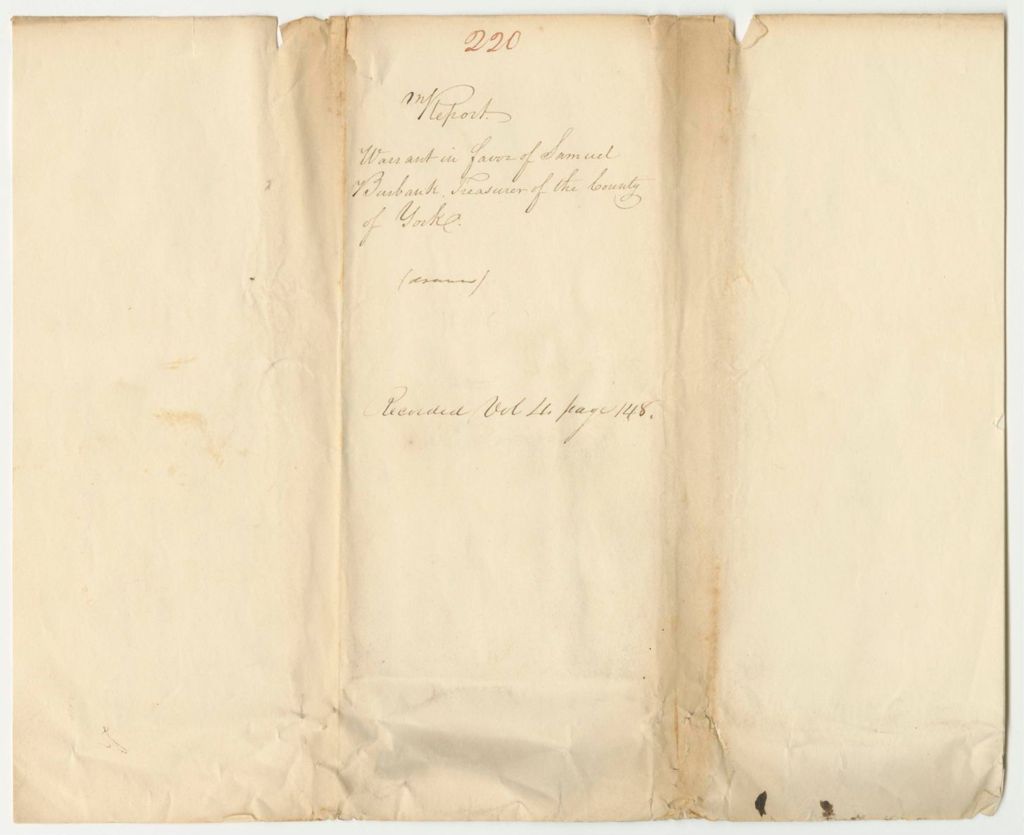 220
Report.
Warrant in favor of Samuel
Burbank, Treasurer of the County
of York.
(drawn)
Recorded Vol 4. page 148.